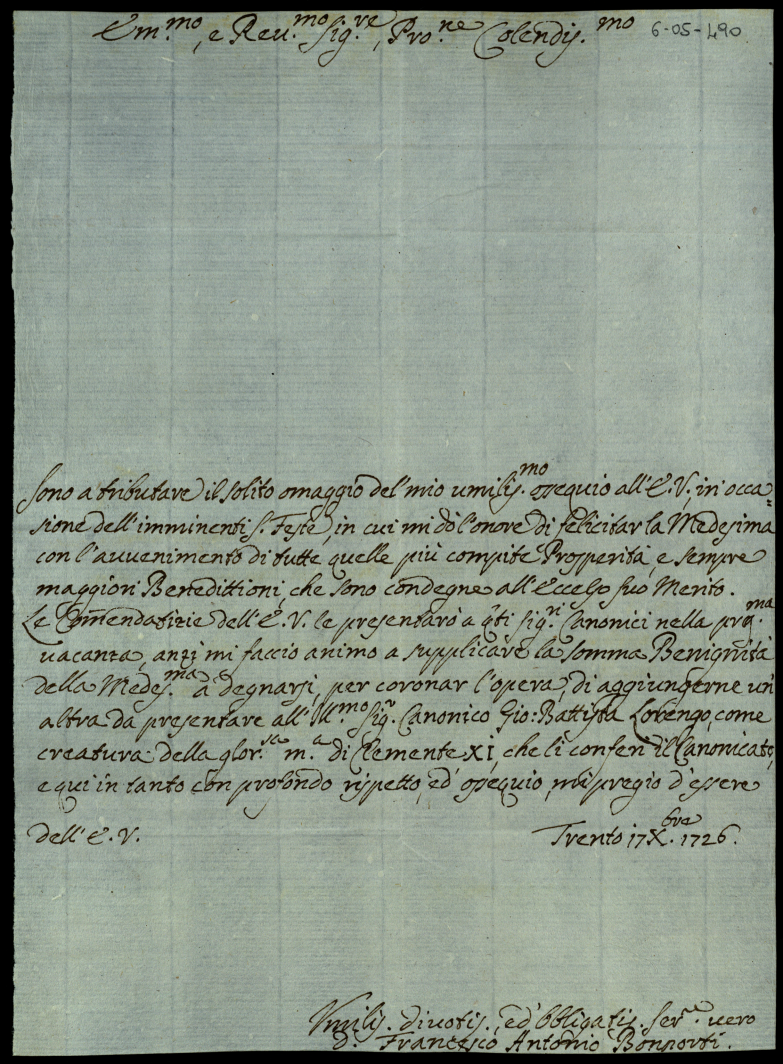 Em.mo, e Reu.mo Sig.re, Pro.ne Colendis.mo 6-05-490
Sono a tributare il solito omaggio del mio umilis.mo ossequio all'E.V., in occa=
sione dell'imminenti S. Feste, in cui mi dò l'onore di felicitar la Medesima
con l'auuenimento di tutte quelle più compite Prosperità, e sempre
maggiori Benedittioni, che sono condegne all'Eccelso suo Merito.
Le Comendatizie dell'E.V. le presentarò a q'ti Sig.ri Canonici nella pro.ma
uacanza, anzi mi faccio animo a supplicare la somma Benignità
della Medes.ma à degnarsi, per coronar l'opera, di aggiungerne un'
altra da presentare all'Ill.mo Sig.r Canonico Gio: Battista Lobengo, come
creatura della glor.sa m.a di Clemente XI, che li conferì il Canonicato,
e qui in tanto con profondo rispetto, ed' ossequio, mi pregio d'essere
dell'E.V. Trento 17 Xbre. 1726.
Vmilis. diuotis., ed' obligatis. ser.e uero
D. Francesco Antonio Bonporti.